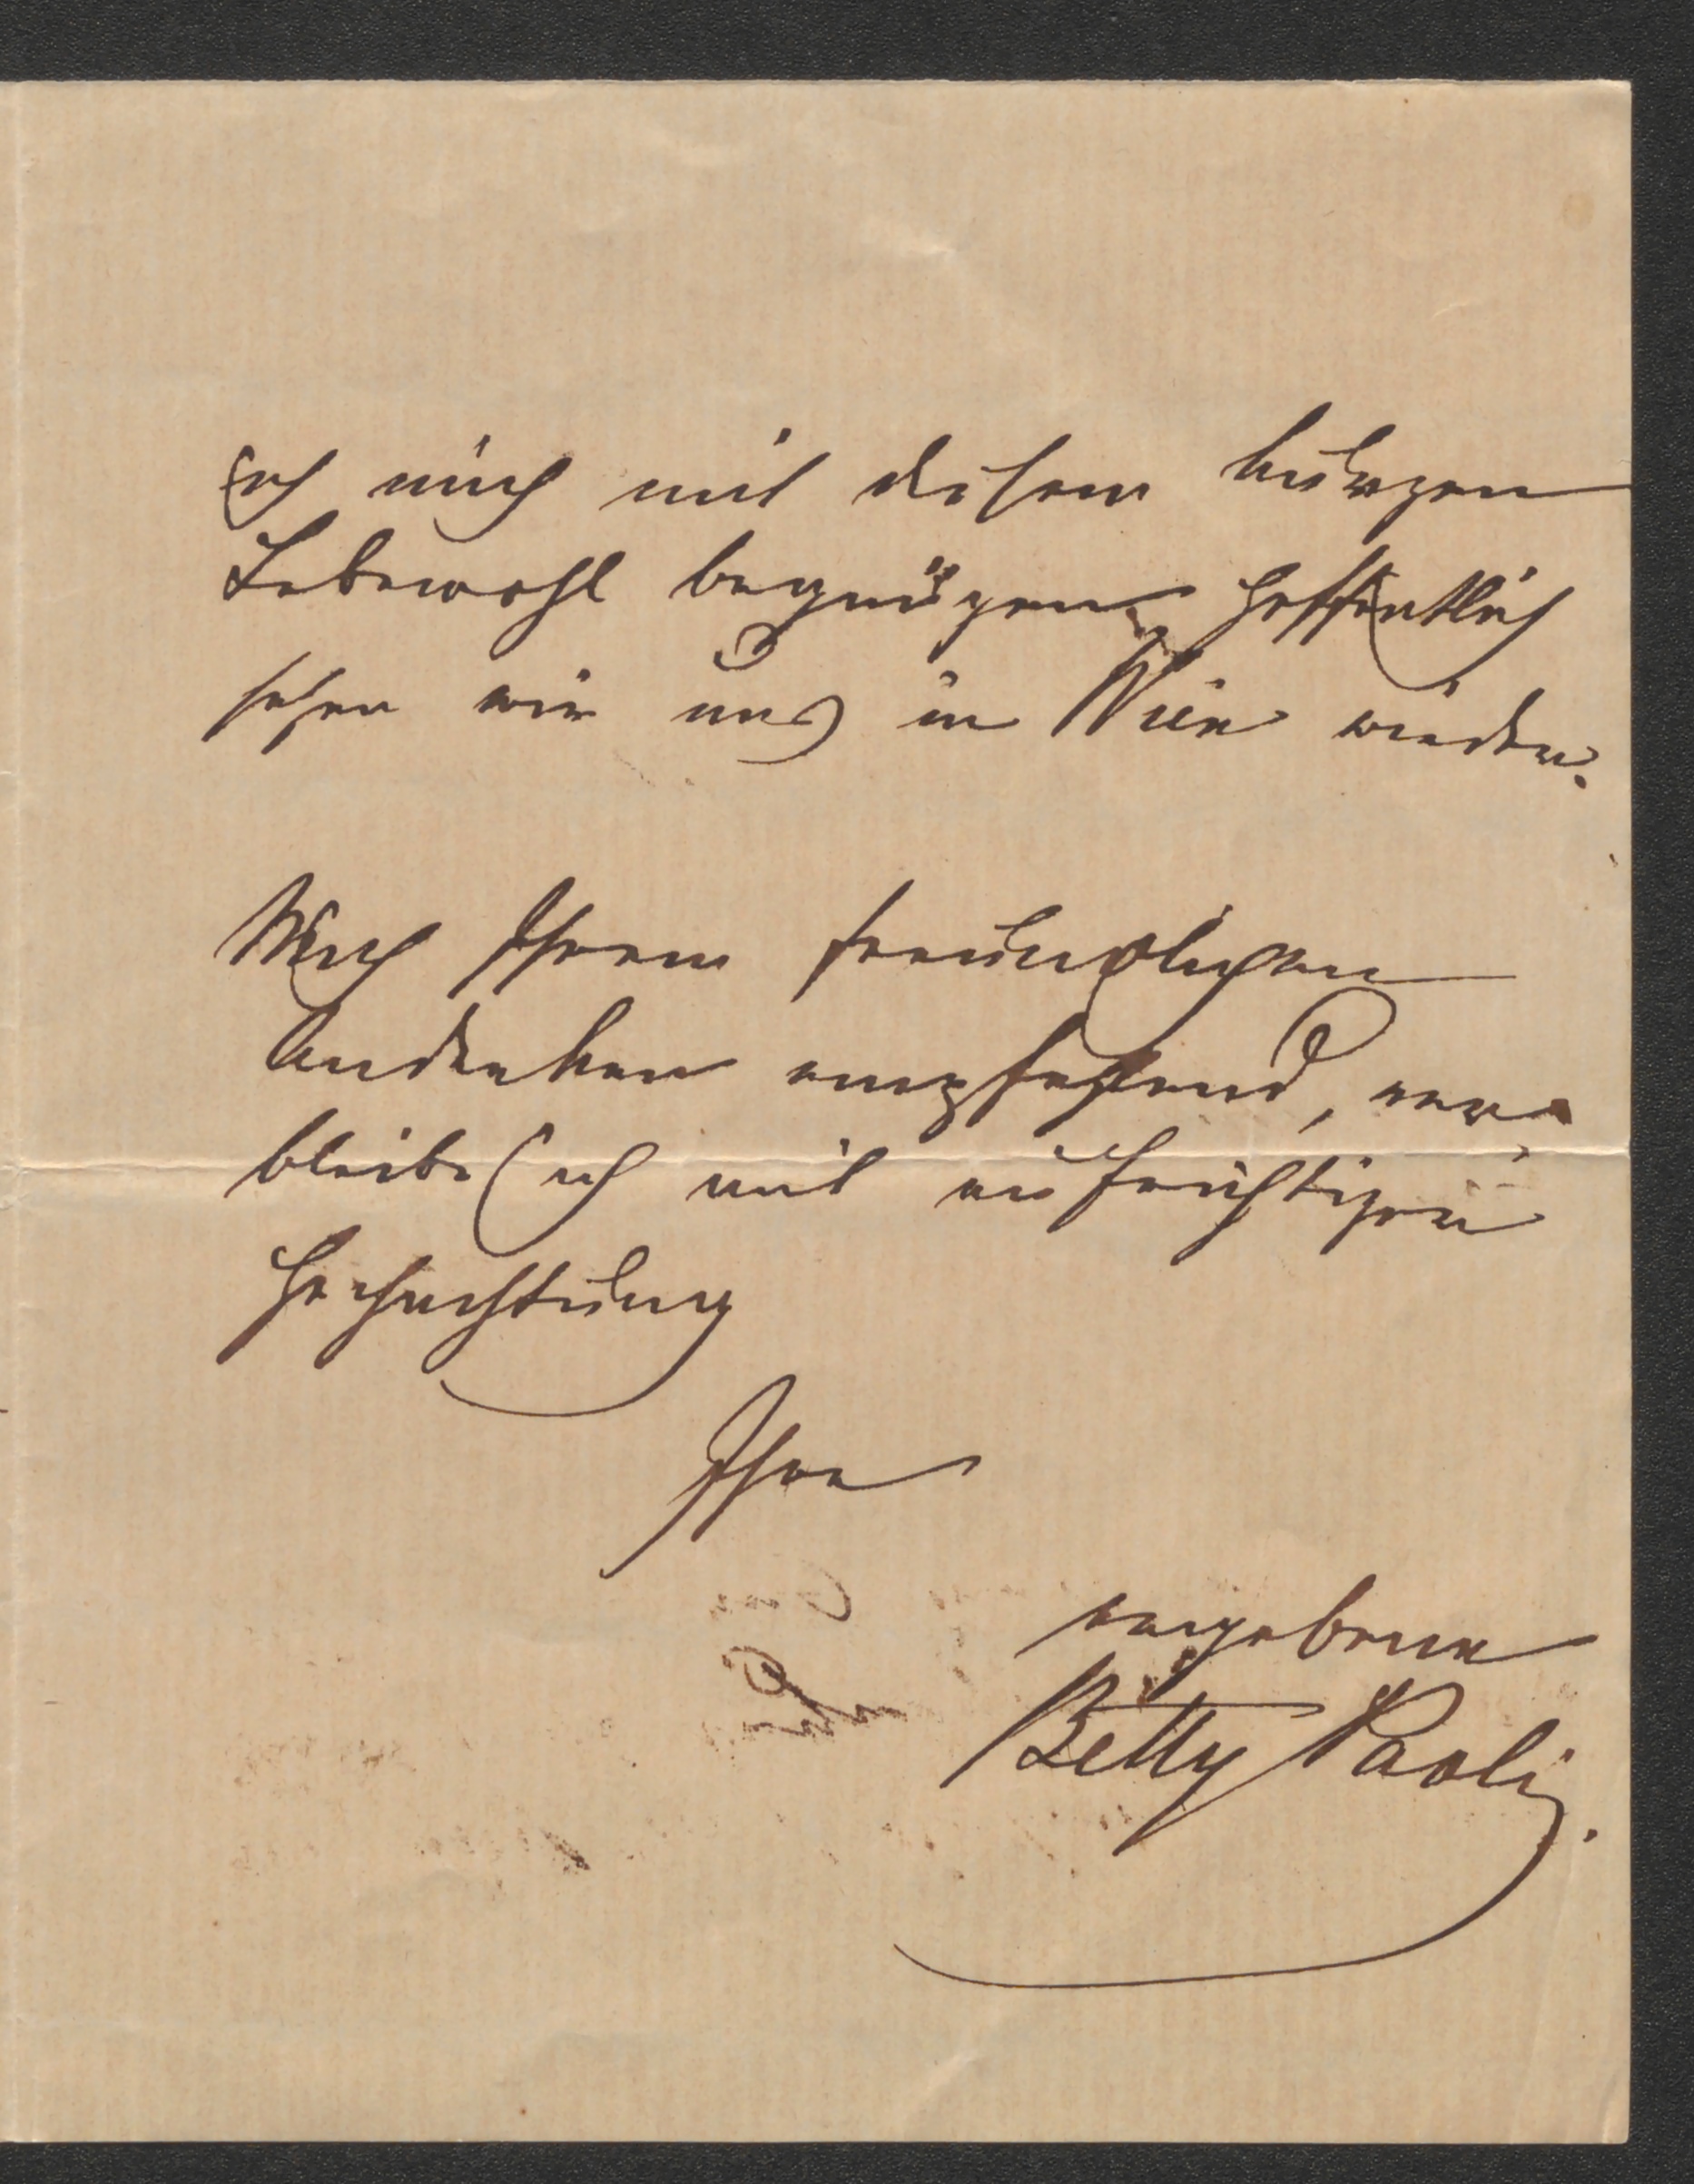 ich mich mit diesem kurzen
Lebewohl begnügen. Hoffentlich
sehen wir uns in Wien wieder.
Mich Ihrem freundlichen
Andenken empfehlend, ver-
bleibe ich mit aufrichtiger
Hochachtung
Ihre
ergebene
Betty Paoli.